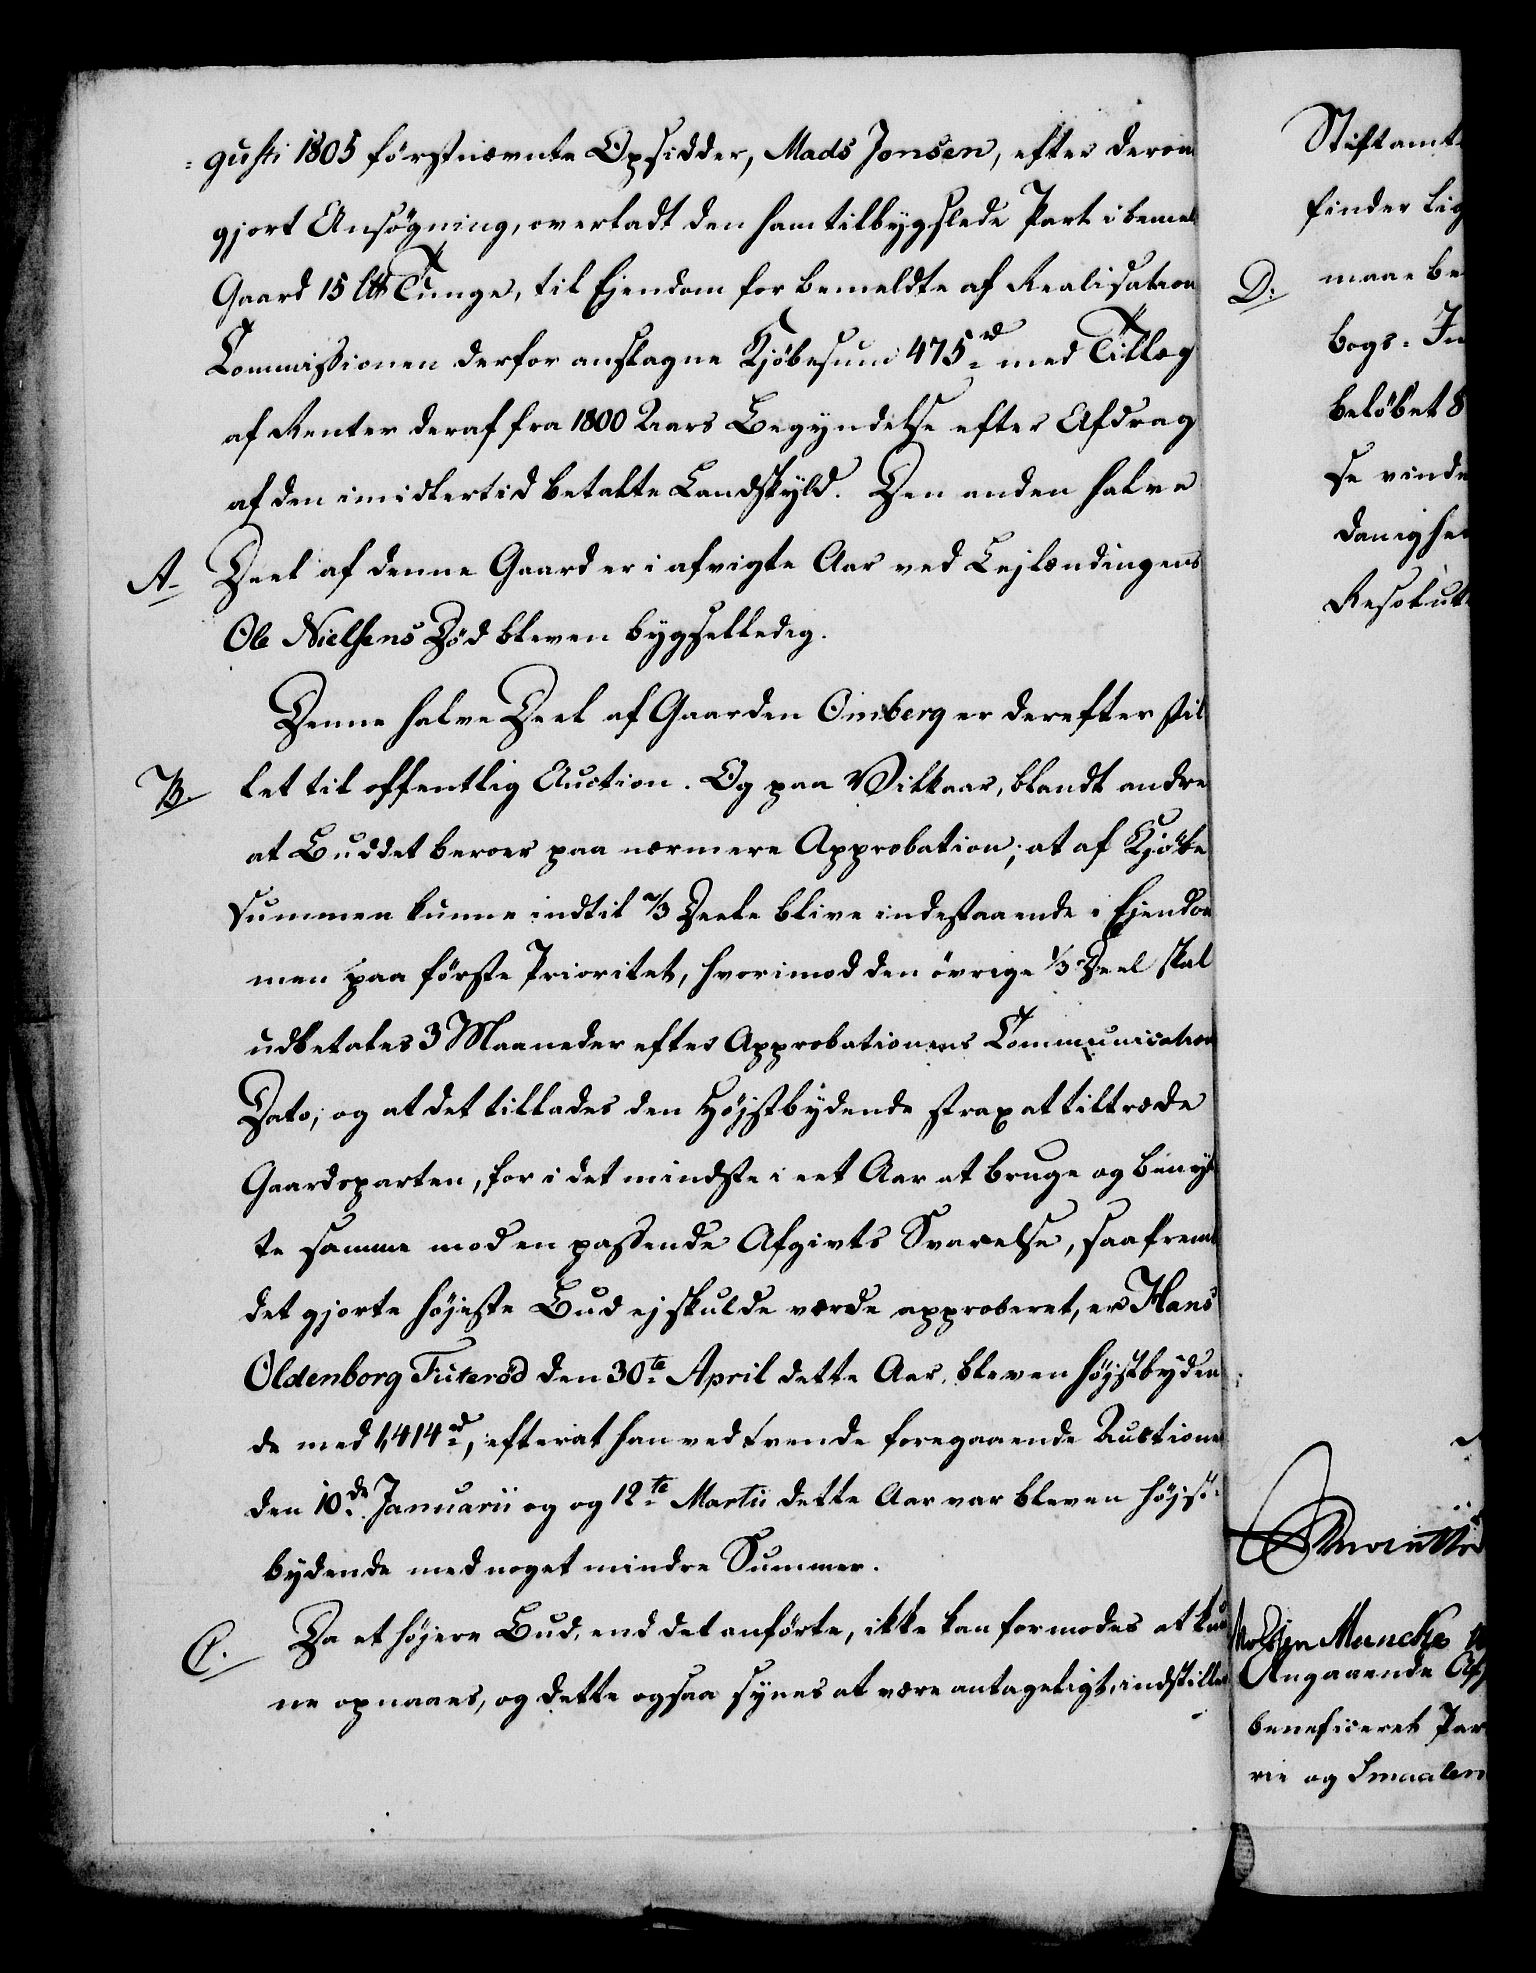 =gusti 1805 förstnævnte Opsidder, Mads Jonsen, efter derom
gjort Ansögning, overladt den ham tilbygslede Part i bemel
Gaard 15 Tunge, til Ejendom for bemeldte af Realisations
Commissionen derfor anslagne Kjöbesum 475 rd med Tillæg
af Renter deraf fra 1800 Aars Begyndelse efter Afdrag
af den imidlertid betalte Landskyld. Den anden halve
A. Deel af denne Gaard er i afvigte Aar ved Lejlændingens
Ole Nielsens Död bleven bygselledig.
Denne halve Deel af Gaarden Omberg er derefter stil
B. let til offentlig Auction. Og paa Vilkaar, blandt andre
at Buddet beroer paa nærmere Approbation; at af Kjöbe
summen kunne indtil 2/3 Deele blive indestaaende i Ejendom
men paa förste Prioritet, hvorimod den övrige 1/3 Deel skal
udbetales 3 Maaneder efter Approbationens Communications
Dato; og at det tillades den Höjstbydende strax at tiltræde
Gaardsparten, for i det mindste i eet Aar at bruge og benyt
te samme mod en passende Afgivts Svarelse, saafremt
det gjorte höjeste Bud ej skulde vorde approberet, er Hans
Oldenborg Fiiteröd den 30te April dette Aar, bleven höjstbyden
de med 1,414 rd, efterat han ved tvende foregaaende Auctioner
den 10de Januarii og og 12te Martii dette Aar var bleven höjst-
bydende med noget mindre Summer.
C. Da et höjere Bud, end det anförte, ikke kan formodes at kun
ne opnaaes, og dette ogsaa synes at være antageligt, indstilles
Stiftamt
finder lig
D. maae be
bogs: In
belöbet 8
se vinde
danighe
Resolut
Muncke
Angaaende Af
beneficeret Par
rie og Smaalen